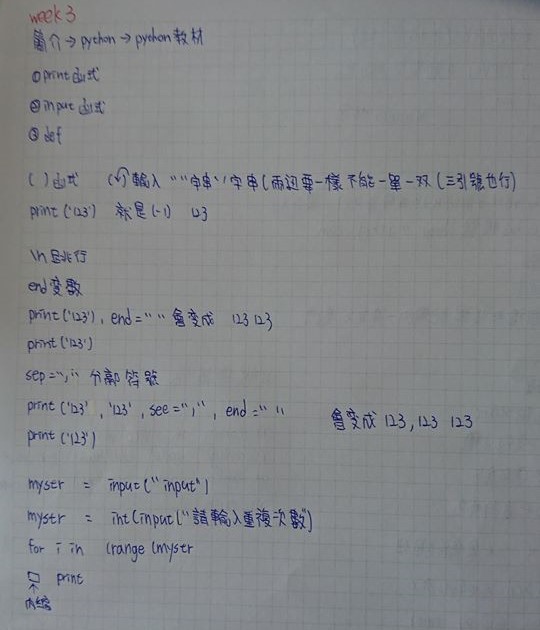 week 3
簡介→python→python教材
①print函式
②input函式
③def
( )函式 輸入 " "字串' '字串(兩边要一樣不能一單一双(三引號也行)
print ('123') 就是 123
\n 是跳行
end 变數
print ('123'), end = " " 會变成 123 123
print ('123')
sep = "," 分鄰符號
print ('123', '123', see = ",", end = " " 會变成 123, 123 123
print ('123')
mystr = input("input")
mystr = int(input("請輸入重複次數")
for i in (range (mystr
□ print
↑
內縮